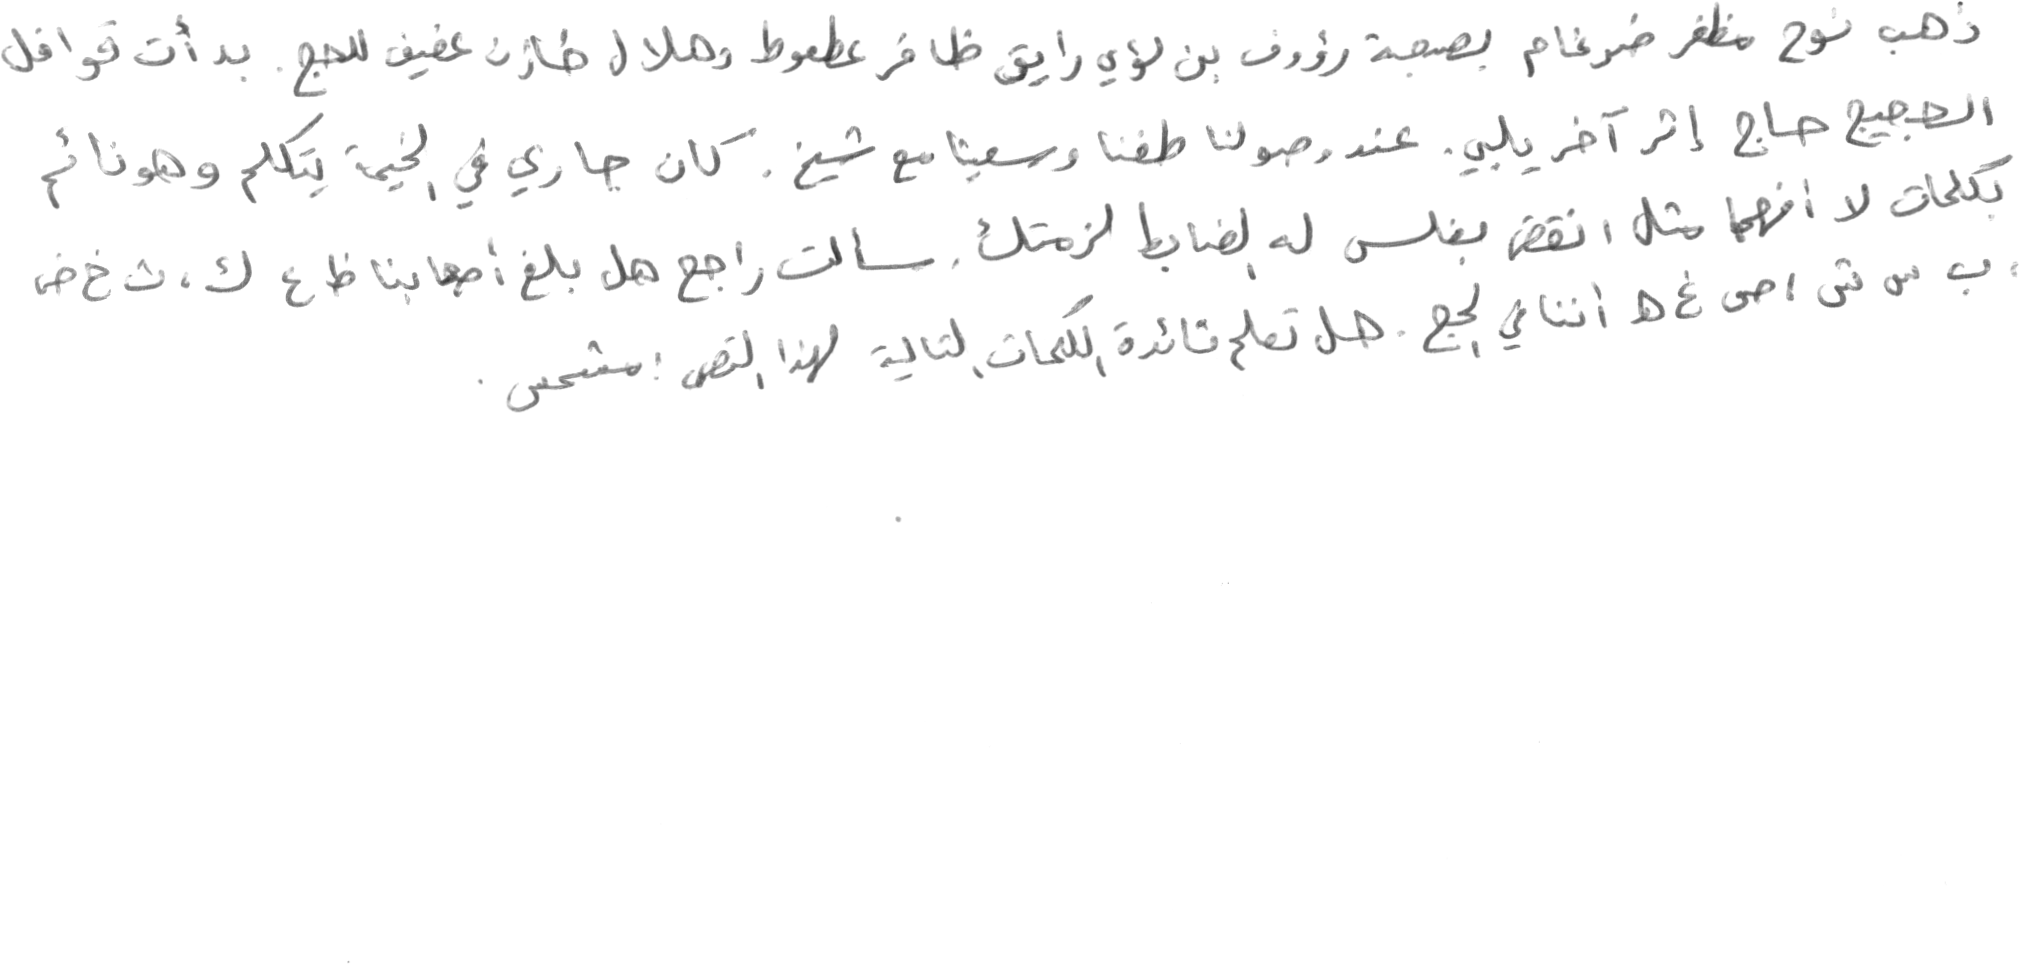 ذهب نوح مظفر ضرغام بصحبة رؤوف بن لؤي رايق ظافر عطعوط وهلال خازن عفيف للحج. بدأت قوافل
الحجيج حاج إثر آخر يلبي. عند وصولنا طفنا وسعينا مع شيخ. كان جاري في الخيمة يتكلم وهو نائم
بكلمات لا أفهمها مثل انقض بغلس له الضابط لزمتك. سألت راجح هل بلغ أصحابنا ظ ع ك، ث خ ض
، ب س ش ا ص غ ه أننا في الحج. هل تعلم فائدة الكلمات التالية لهذا النص: مشمس.